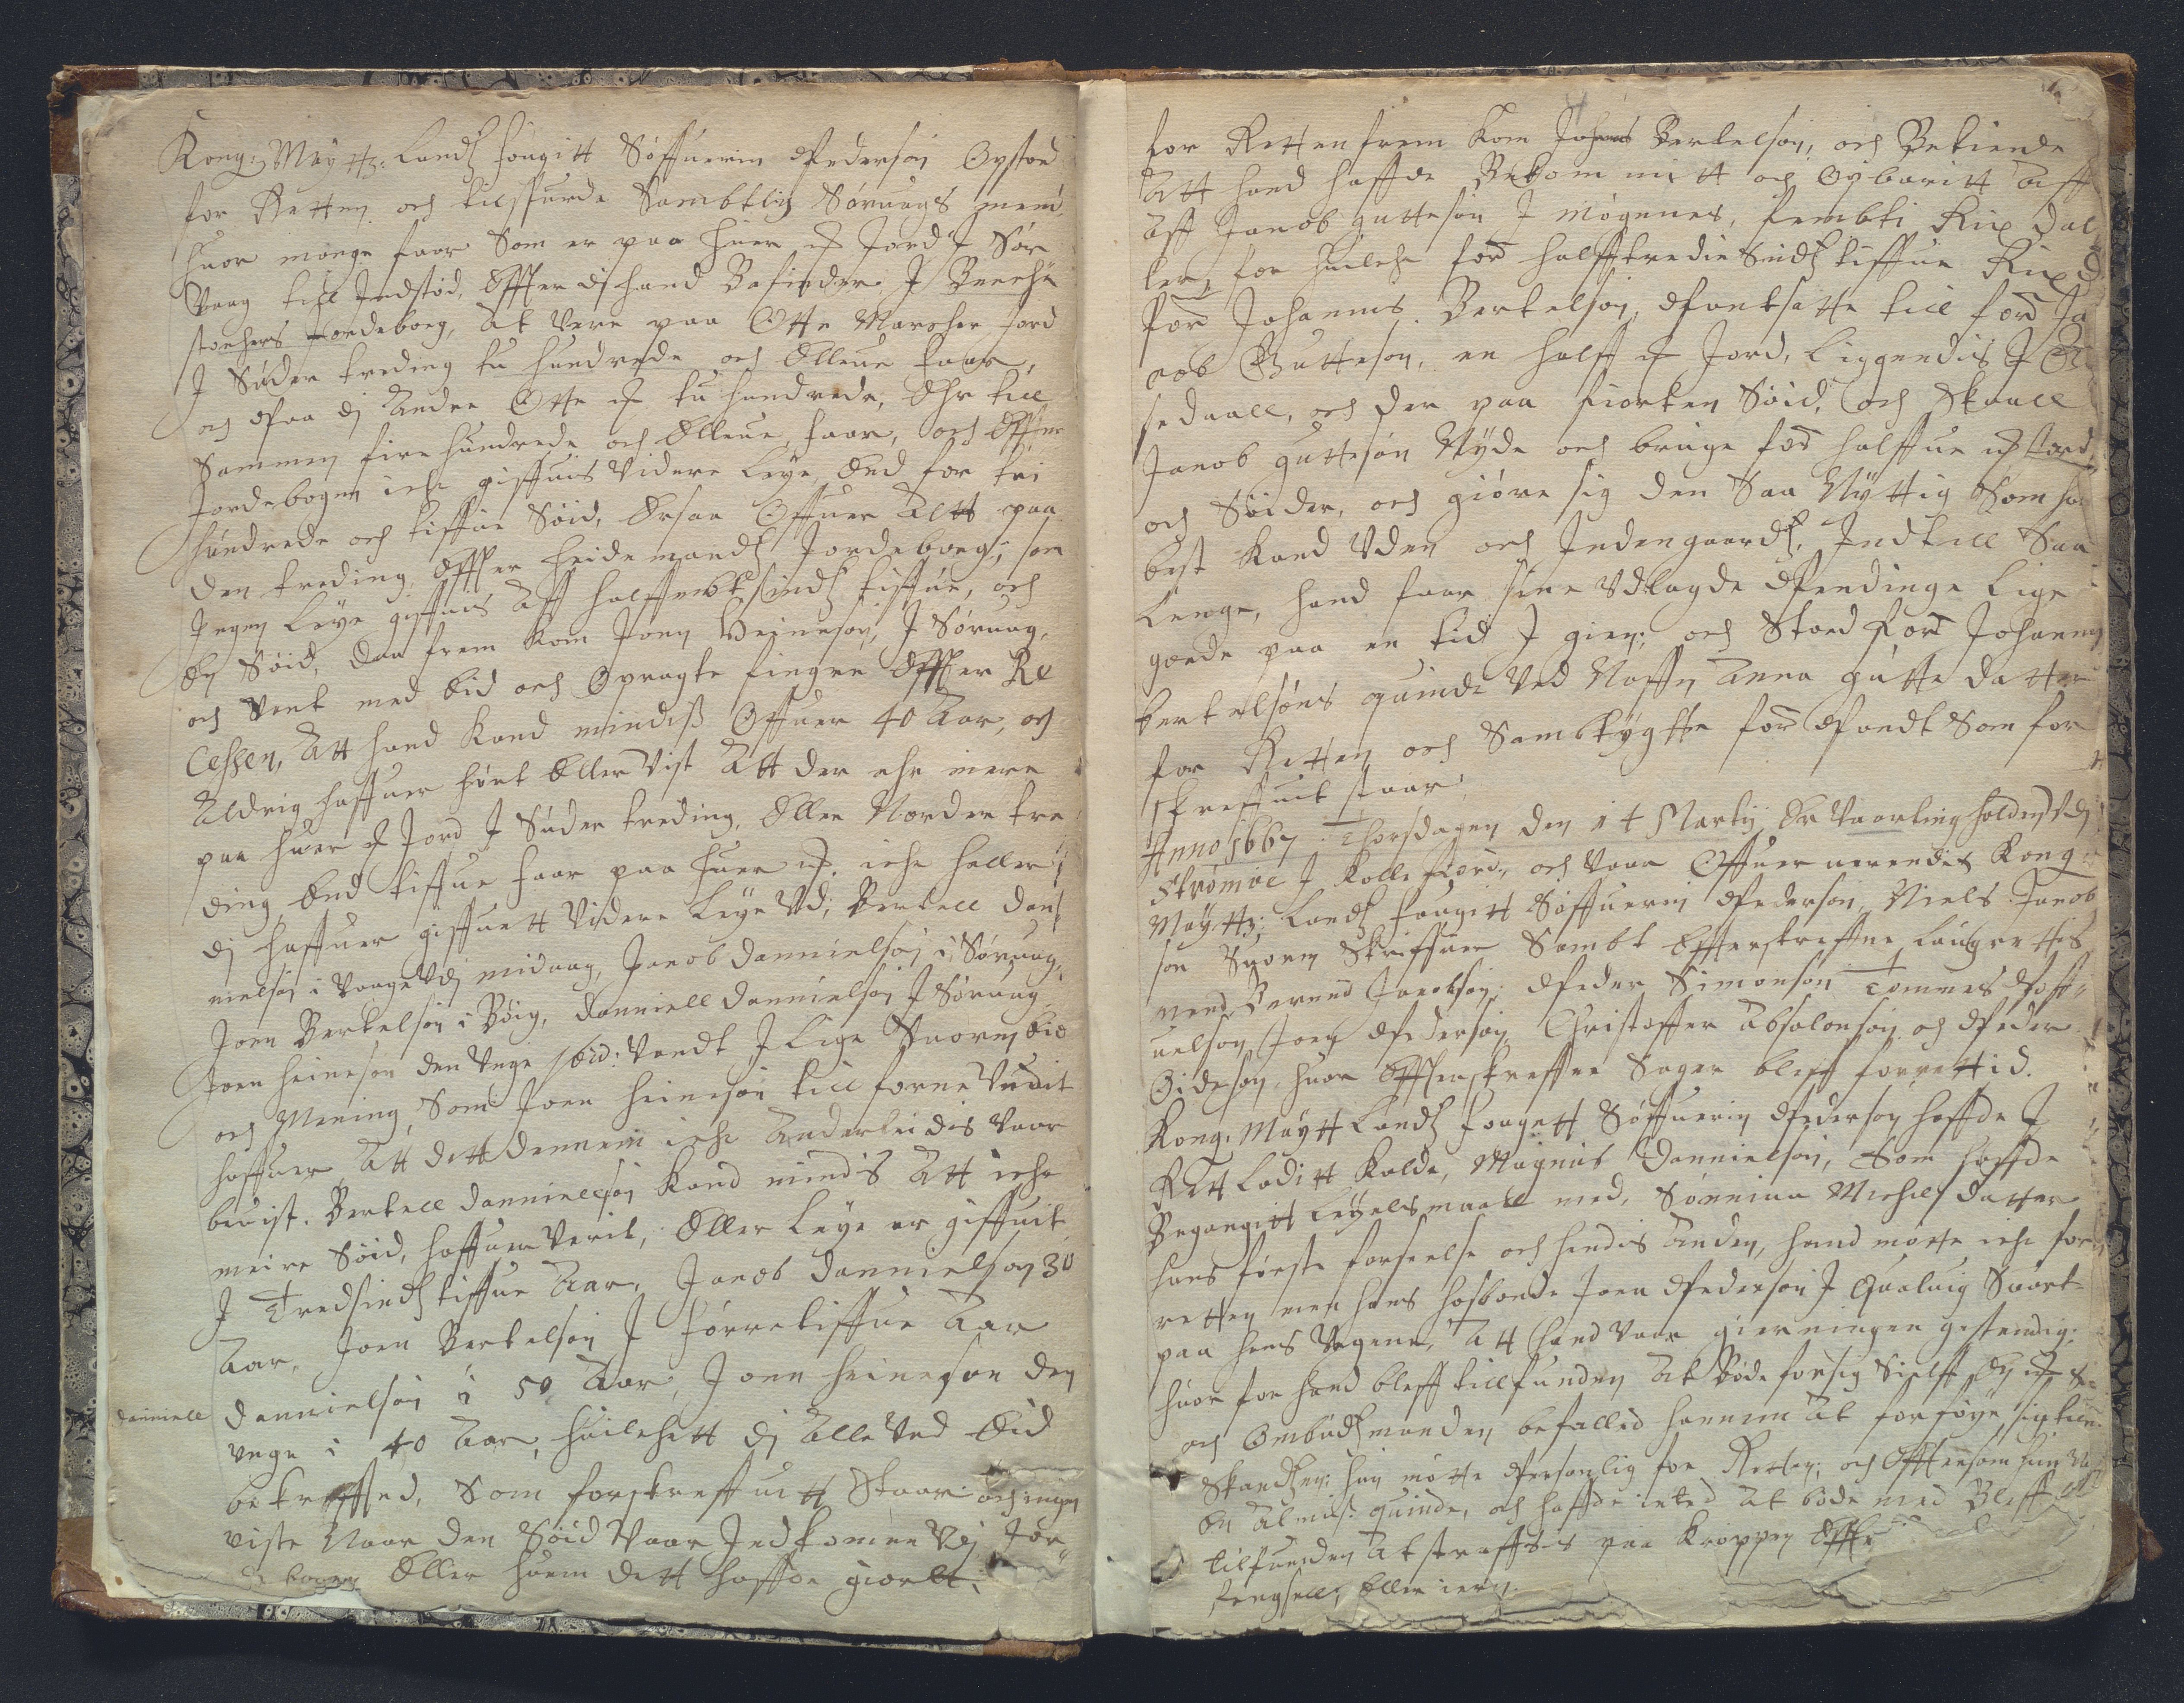 Kong: Maytz: Landtz fougitt Søffuerin Pederson Opstod
for Retten och tilspurde Sambtlig Søruags mend,
huor mange faar Som er paa huer M Jord J Sør
Vaag till Jndstød, Effter di hand Befinder J
Jordebog, At Vere paa Otte Marcher Jord
J Søder treding tu hundrede och Elleue faar,
och paa di Andre Otte M tu hundrede, Ehr till
Sammen fire hundrede och Elleue faar, och Effter
Jordebogen iche giffuis Videre Leye End for tri
hundrede och tiffue Søid, Ersaa Offuer Alt paa
den treding, Effter heidemandtz Jordebog, som
Jngen Leye giffuis Aff halffembtesindtz tiffue, och
En Søid, daa frem kom Joen Heineson, J Søruag,
och Vant med Eid och Opragte fingre Effter Re
Cessen, Att hand kand mindis Offuer 40 Aar, och
Aldrig haffuer hørt Eller Vist Att der ehr mere
paa huer M Jord J Søder treding, Eller Norder tre
ding End tiffue faar paa huer M. iche heller
di haffuer giffuett Videre Leye Vd; Bertell Dan
nielson i Vaage Vdj miduag, Jacob Dannielson i Søruag,
Joen Bertelson i Bøig, Danniell Dannielson J Søruag
Joen heineson den Vnge ibid: Vandt J Lige Suoren Eid
och Mening, Som Joen heineson till forne Vundit
haffuer, Att dett dennem iche Anderleidis Vaar
beuist. Bertell Danniellson kand mindis Att iche
meire Søid, haffuer Verit, Eller Leye er giffuit,
J Tredsindtz tiffue Aar, Jacob Dannielson 30
Aar, Joen Bertelson J førretiffue Aar
Danniell Dannielson i 50 Aar, Joen heineson den
Vnge i 40 Aar, huilchett di Alle Ved Eid
bekreffted, Som forskreffuitt Staar och ingen
viste Naar den Søid Vaar Jndkomen Vdj Jor
de bogen Eller huem dett haffde giortt.
for Retten frem kom Johans Bertelson, och Bekiende
Att hand haffde Bekommitt och Opbarit Aff
Aff Jacob Gutteson J Møgenes, fembti Rix dal
ler, for huilche for halfftredie Sindtz tiffue Rix d
for Johannis Bertelson, Pantsatte till for Ja
cob Gutteson, en halff M Jord, Liggendis J
sedaall, och der paa fiorten Søid, och Skaall
Jacob Guttesøn Nyde och bruge for halffue M Jord
och Søider, och giøre sig den Saa Nyttig Som ha
best kand Vden och Jndengaardtz, Jndtill Saa
Lenge, hand faar sine Vdlagde Pendinge Lige
goede paa en tid J gien; och Stoed for Johannis
bertelsøns quinde Ved Naffn Anna Gutte datter
for Retten och Samtygtte for Pandt Som for
skreffuit staar.
Anno 1667 Thorsdagen den 14 Martij Er Vaarting holden Vdj
Strømøe J Kollefiord, och Vaar Offuer verendis Kong
Maytz: Landtz fougitt Søffuerin Pederson, Niels Jacob
son Suoren Skriffuer Sambt Effterskreffne Laugrettis
mend Berend Jacobson, Peder Simonson Tommes Poff
uelson, Joen Pederson, Christoffer Absolonson och Peder
Gideson, huor Effterskreffne Sager bleff forrettid.
Kong. Maytt Landtz fougett Søffuerin Pederson haffde J
Rett ladit kalde, Magnus Dannielson, Som haffde
Begangitt Leyelsmaall med, Sønneua Michels datter
hans første forseelse och hendis Anden, hand møtte iche for
retten men hans hosbonde Joen Pederson J Qualuig Suart
paa hans Vegne, Att hand Vaar gierningen gestendig,
huor for hand bleff tillfunden At Bøde for sig Sielff
och Ombudtzmanden befallid hannem At forføye sig till
Skandtzen; hun møtte Personlig for Retten, och Effter som hun
En Almis. quinde, och haffde inted At bøde med Bleff
tilfunden At straffes paa kroppen Effter
fengsell, Eller iern.